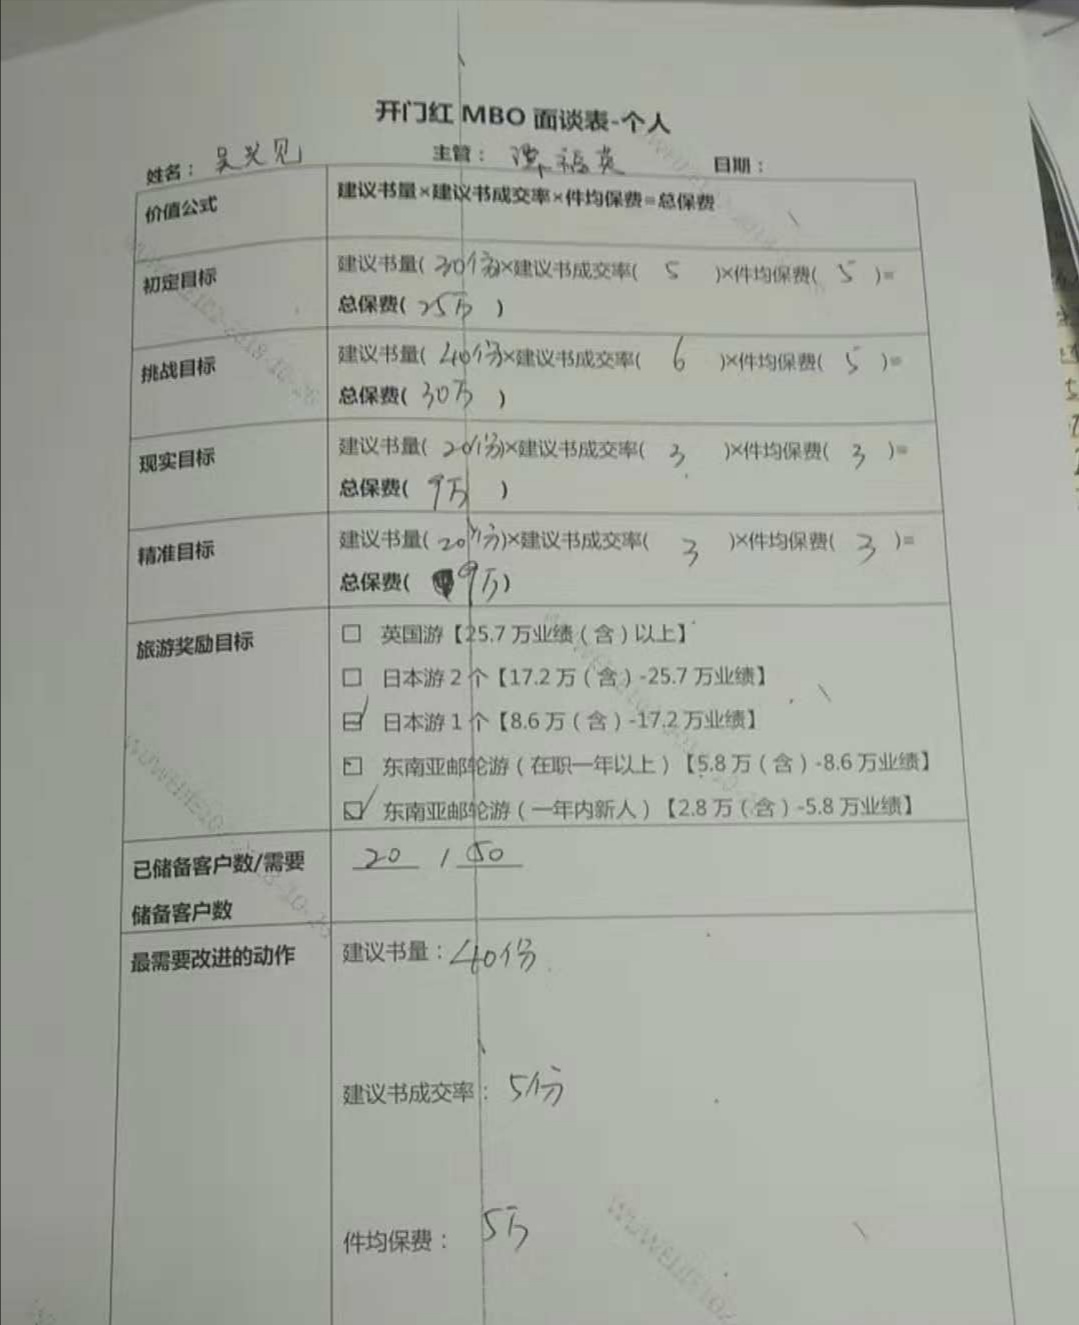 开门红 MBO 面谈表-个人
姓名： 吴 见 主管： 福英 日期：
价值公式 建议书量×建议书成交率×件均保费=总保费
初定目标 建议书量( 30份 )×建议书成交率( 5 )×件均保费( 5 )=
总保费( 25万 )
挑战目标 建议书量( 40份 )×建议书成交率( 6 )×件均保费( 5 )=
总保费( 30万 )
现实目标 建议书量( 20份 )×建议书成交率( 3 )×件均保费( 3 )=
总保费( 9万 )
精准目标 建议书量( 20份 )×建议书成交率( 3 )×件均保费( 3 )=
总保费( 9万 )
旅游奖励目标 □ 英国游【25.7 万业绩（含）以上】
□ 日本游 2 个【17.2 万（含）-25.7 万业绩】
日本游 1 个【8.6 万（含）-17.2 万业绩】
东南亚邮轮游（在职一年以上）【5.8 万（含）-8.6 万业绩】
东南亚邮轮游（一年内新人）【2.8 万（含）-5.8 万业绩】
已储备客户数/需要 20 / 50
储备客户数
最需要改进的动作 建议书量：40份
建议书成交率：5份
件均保费：5万